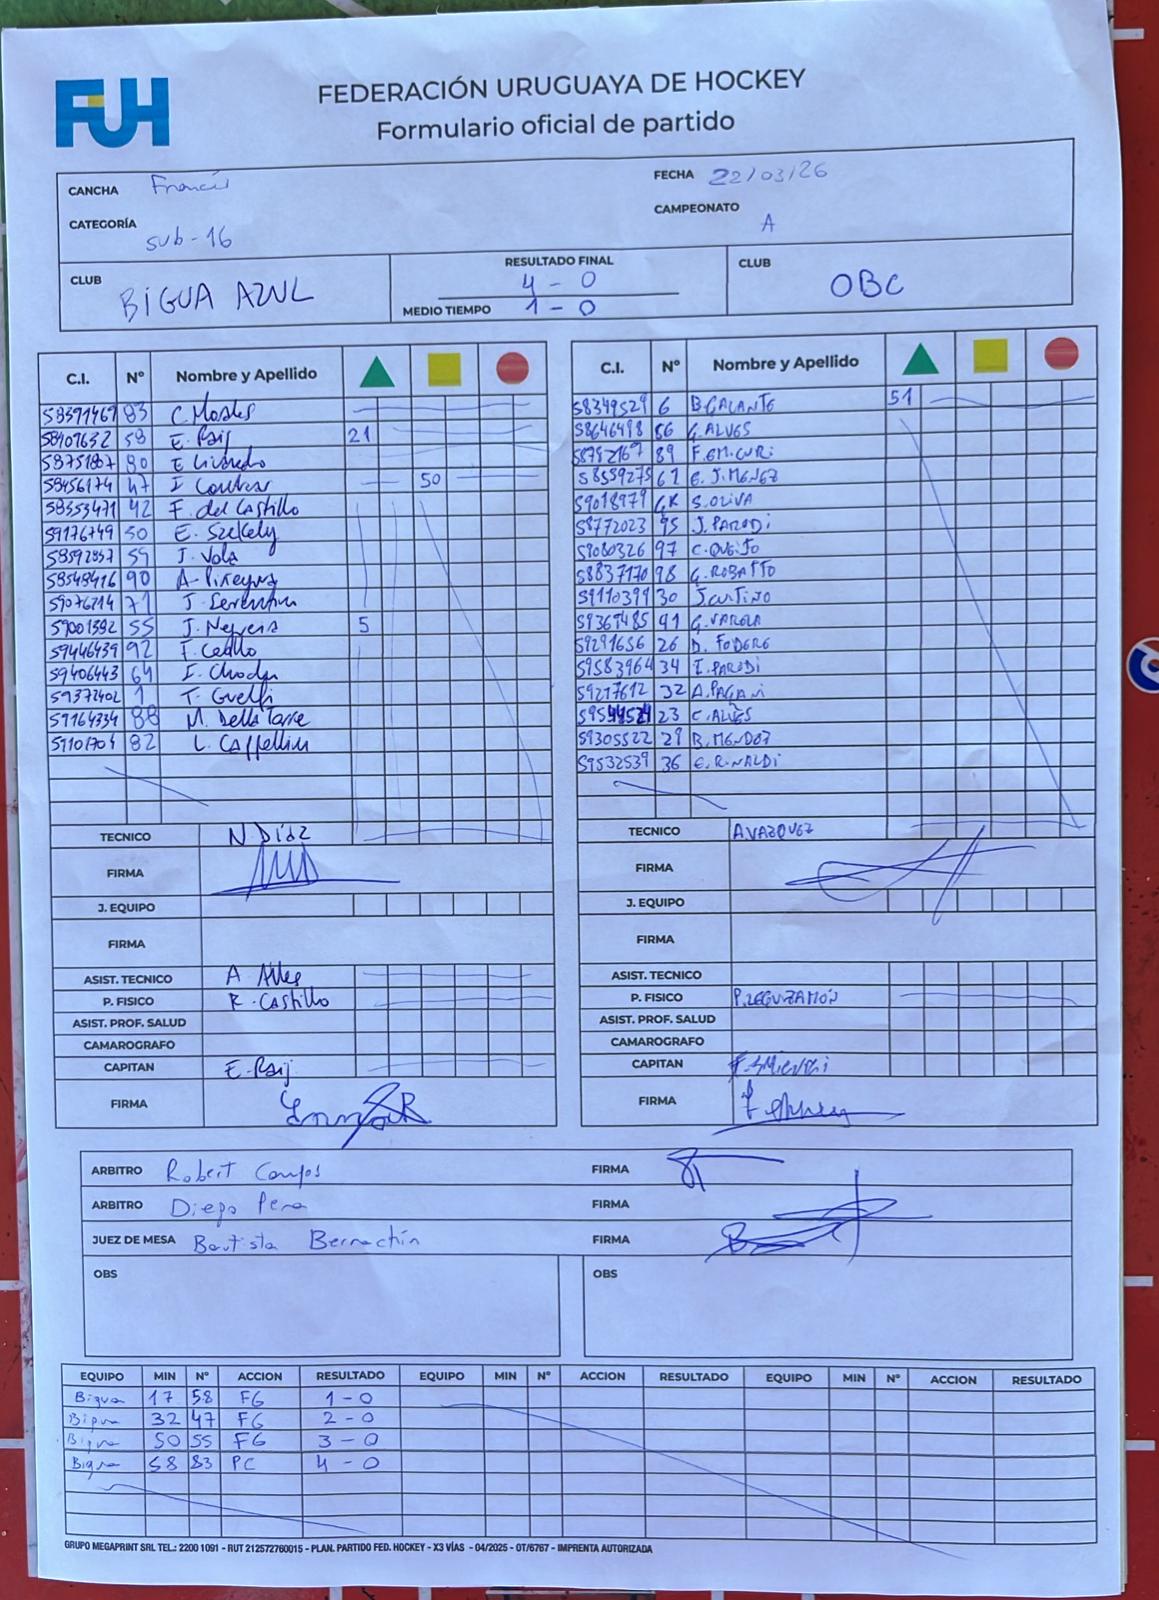 FUH
FEDERACIÓN URUGUAYA DE HOCKEY
Formulario oficial de partido
CANCHA Francés FECHA 22/03/26
CATEGORÍA sub-16 CAMPEONATO A
CLUB BIGUA AZUL RESULTADO FINAL 4 - 0 CLUB OBC
MEDIO TIEMPO 1 - 0
C.I. Nº Nombre y Apellido
58391467 83 C. Morales
58407652 58 E. Raij 21
58751887 80 E
58456174 47 I 50
58353471 42 F. del Castillo
59176749 50 E. Szekely
58592857 59 J. Vola
58548416 90 A. Pireyra
59076214 71 J.
59001392 55 J. 5
59446439 92 F.
59406443 64 I.
59372402 1 T. Guelfi
59164334 88 M. Della Torre
59101704 82 L. Caffellini
TECNICO N. Díaz
FIRMA
J. EQUIPO
FIRMA
ASIST. TECNICO A.
P. FISICO R. Castillo
ASIST. PROF. SALUD
CAMAROGRAFO
CAPITAN E. Raij
FIRMA
C.I. Nº Nombre y Apellido
58349529 6 B. GALANTE 51
58646498 86 G. ALVES
58792167 89 F. EM. CURI
58559275 61 E. J. MENDEZ
59018979 GK S. OLIVA
58772023 95 J. PARODI
59080326 97 C. QUEIJO
58837170 98 G. ROBATTO
59110399 30 J. CUTINO
59369485 91 G. VARELA
59291656 26 D. FODERE
59583964 34 I. PARODI
59217612 32 A. PAGANI
23 C. ALVES
59305522 29 B. MENDOZ
59532539 36 E. RINALDI
TECNICO A VAZQUEZ
FIRMA
J. EQUIPO
FIRMA
ASIST. TECNICO
P. FISICO P. LEGUIZAMÓN
ASIST. PROF. SALUD
CAMAROGRAFO
CAPITAN
FIRMA
ARBITRO Robert Campos FIRMA
ARBITRO Diego Pera FIRMA
JUEZ DE MESA Bautista Bernachín FIRMA
OBS OBS
EQUIPO MIN Nº ACCION RESULTADO EQUIPO MIN Nº ACCION RESULTADO EQUIPO MIN Nº ACCION RESULTADO
Bigua 17 58 FG 1 - 0
Bigua 32 47 FG 2 - 0
Bigua 50 55 FG 3 - 0
Bigua 58 83 PC 4 - 0
GRUPO MEGAPRINT SRL TEL.: 2200 1091 - RUT 212572760015 - PLAN. PARTIDO FED. HOCKEY - X3 VÍAS - 04/2025 - OT/6767 - IMPRENTA AUTORIZADA